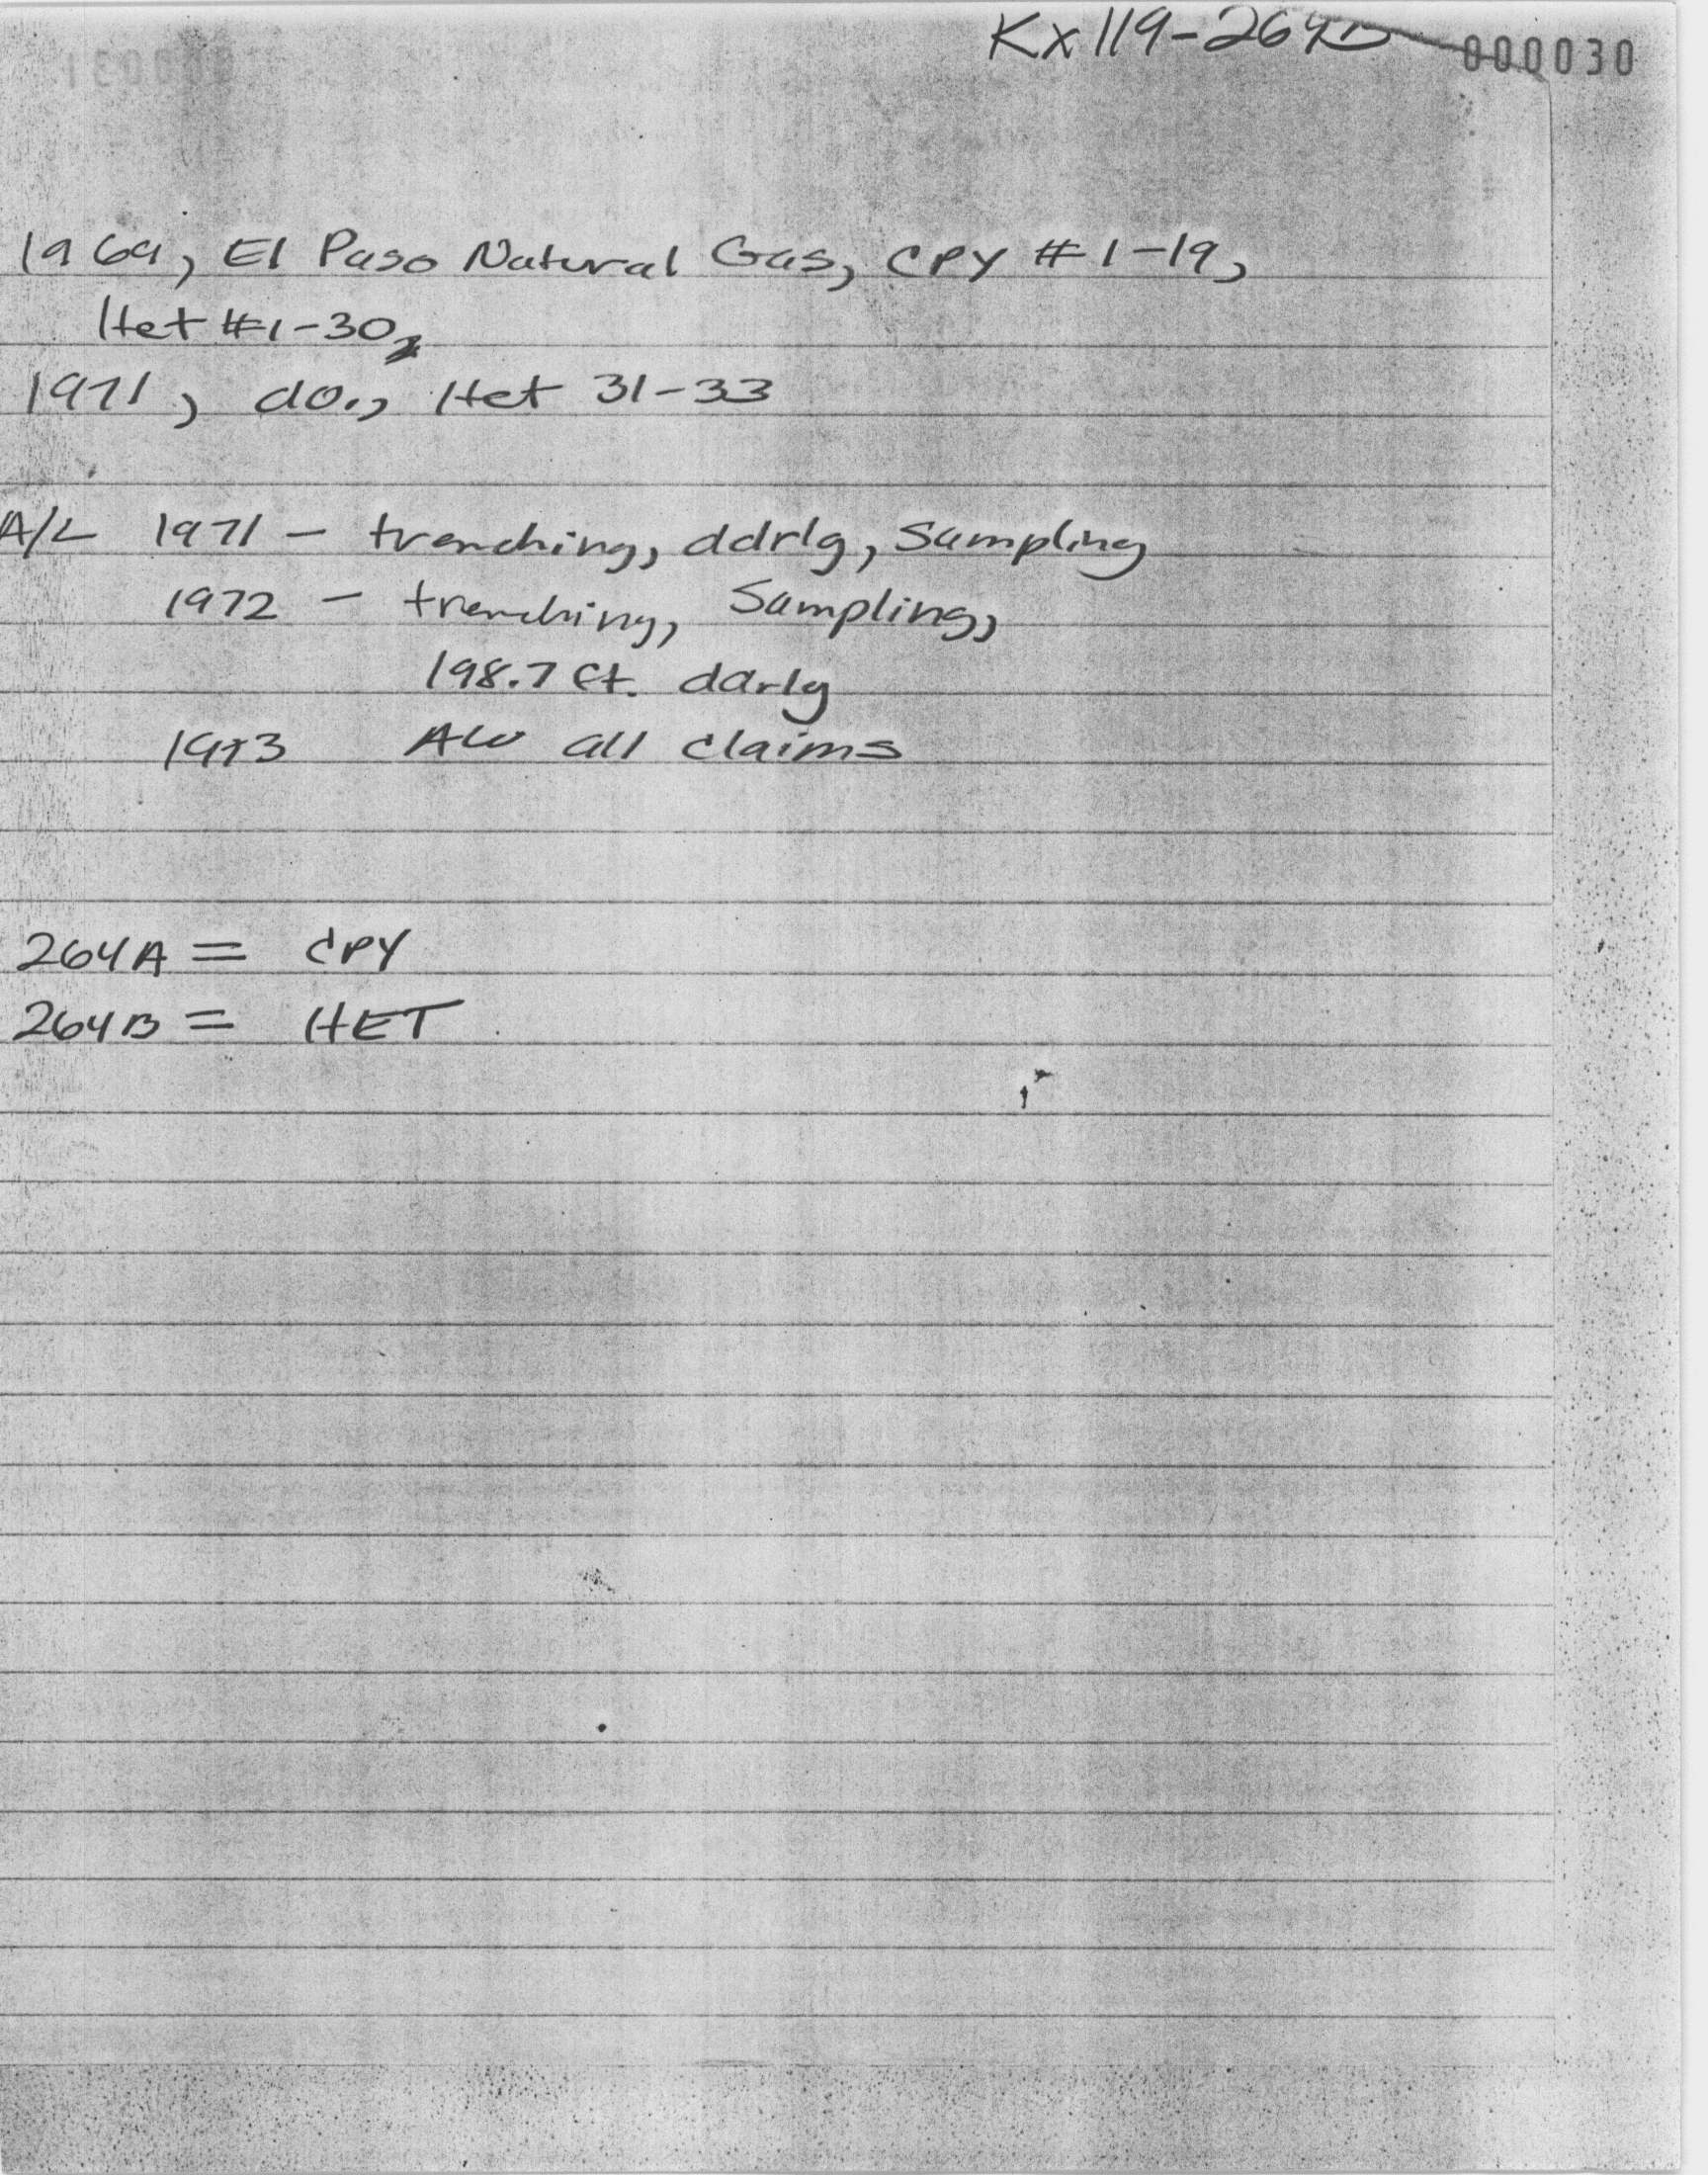 Kx 119-264B
000030
1969, El Paso Natural Gas, CPY #1-19,
Het #1-30,
1971, do., Het 31-33
A/L 1971 - trenching, ddrlg, Sampling
1972 - trenching, Sampling,
198.7 ft. ddrlg
1973 AW all claims
264A = CPY
264B = HET